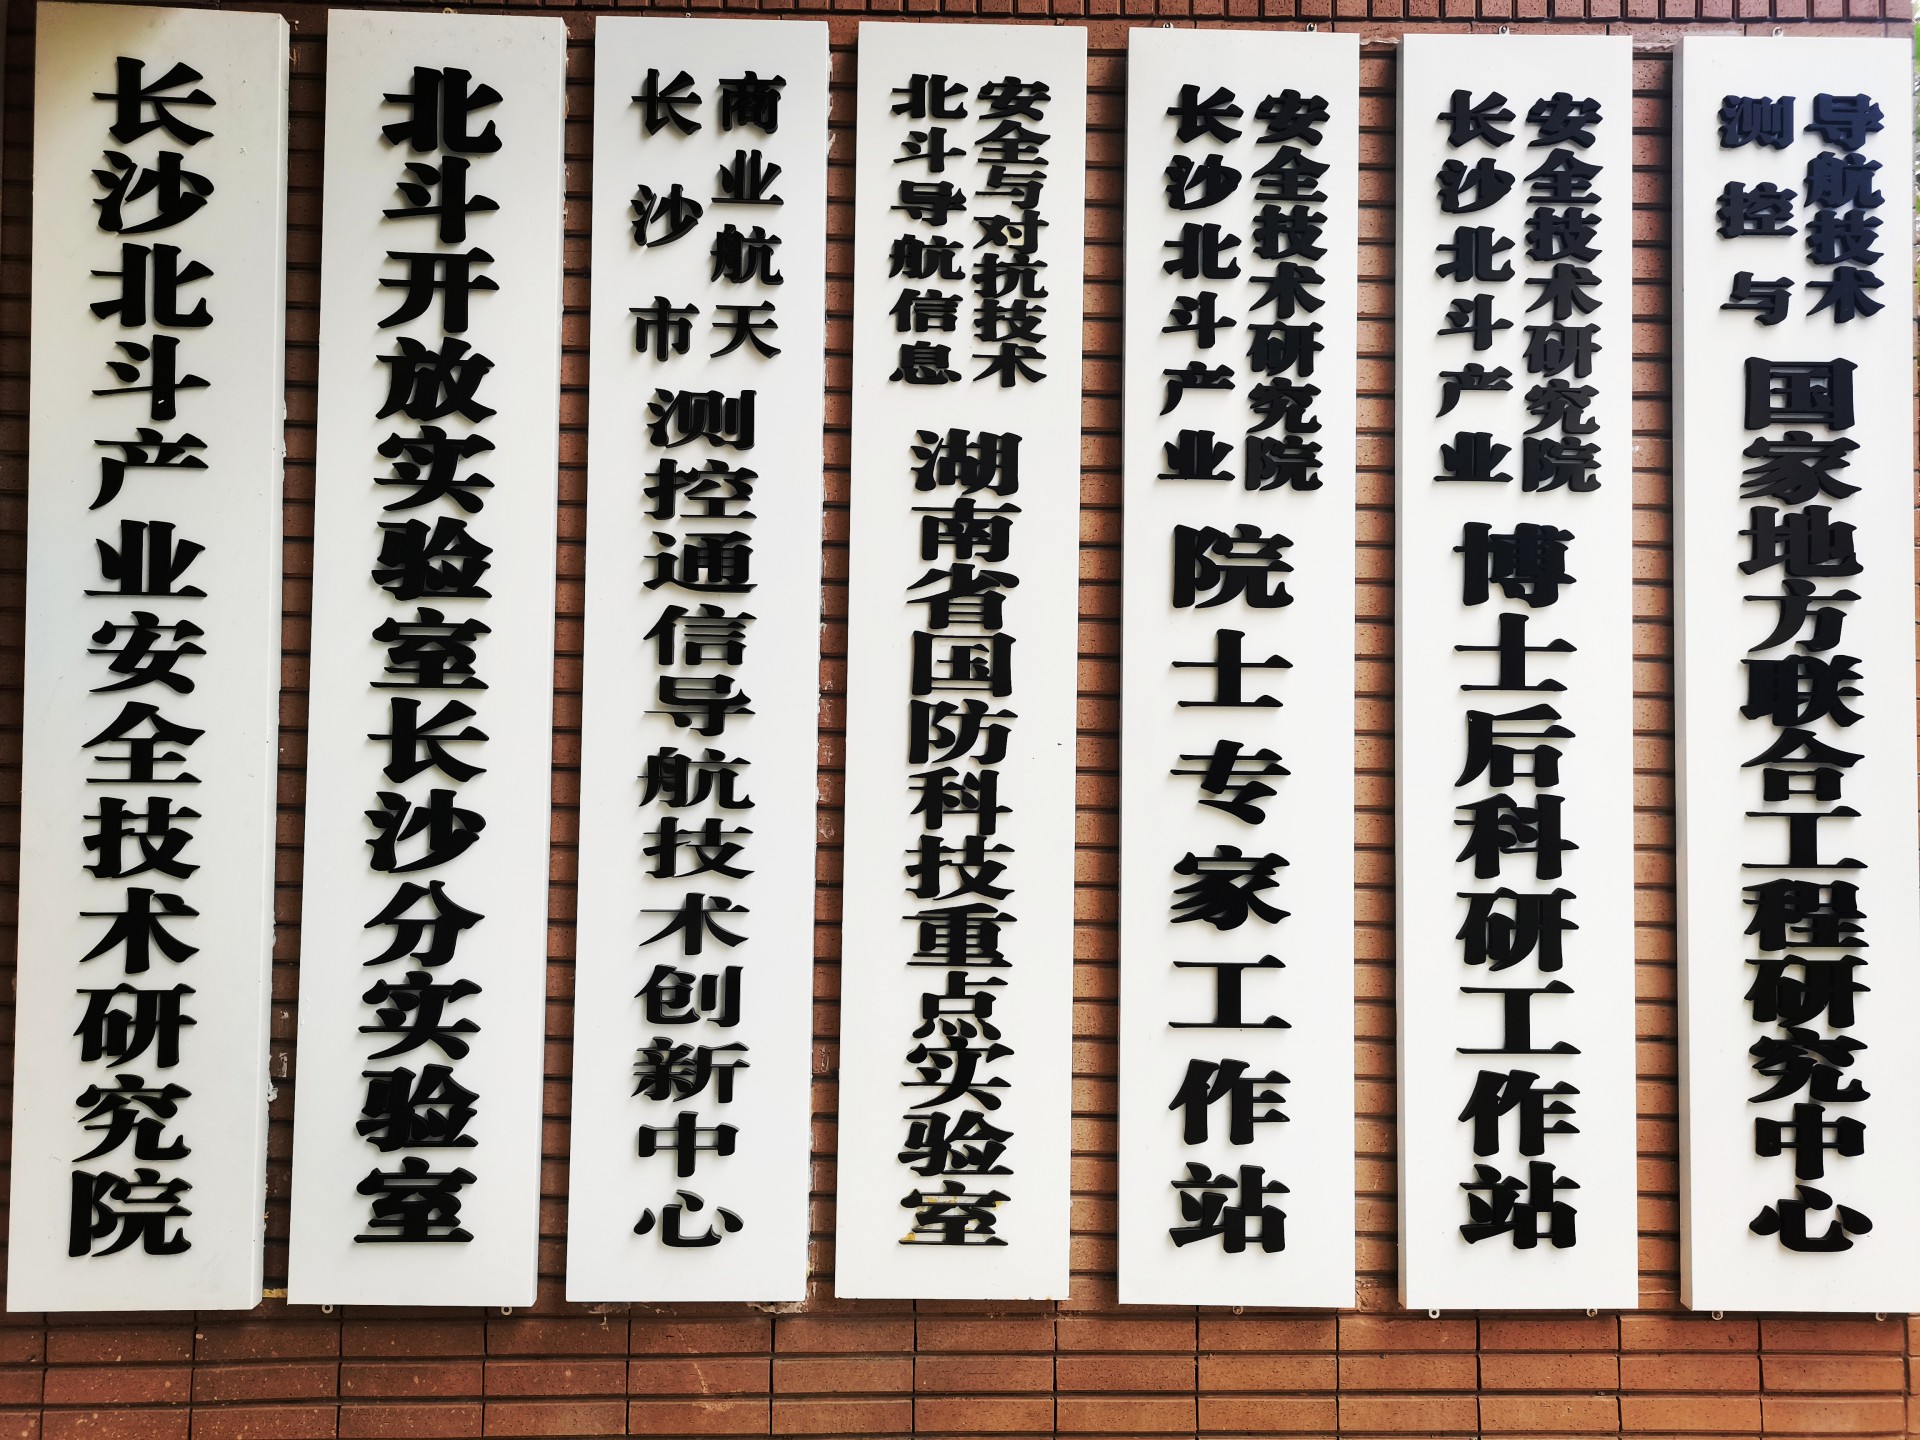 长沙北斗产业安全技术研究院
北斗开放实验室长沙分实验室
长沙市
商业航天
测控通信导航技术创新中心
北斗导航信息
安全与对抗技术
湖南省国防科技重点实验室
长沙北斗产业
安全技术研究院
院士专家工作站
长沙北斗产业
安全技术研究院
博士后科研工作站
测控与
导航技术
国家地方联合工程研究中心